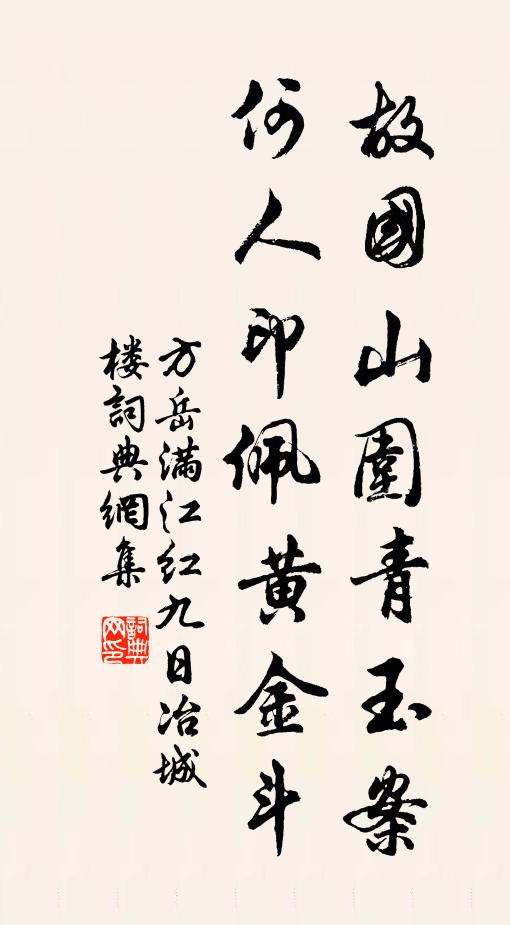 故國山圍青玉案
何人印佩黄金斗
方岳满江红九日冶城
楼詞典網集
詞典网印